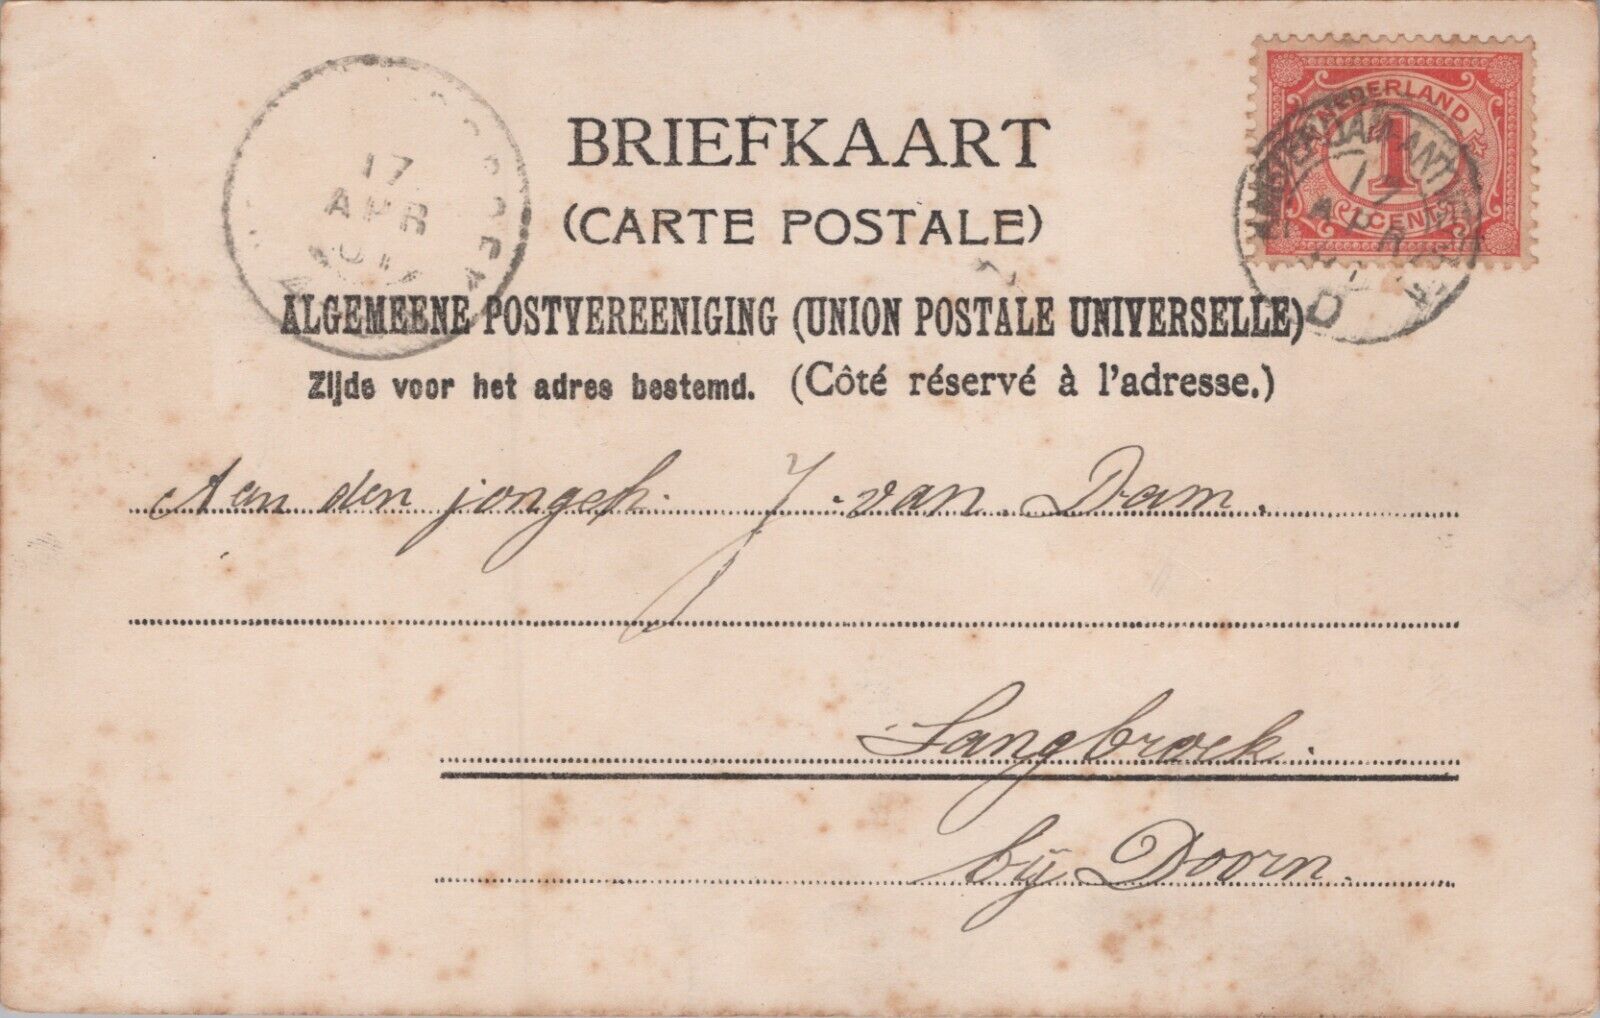 BRIEFKAART
(CARTE POSTALE)
ALGEMEENE POSTVEREENIGING (UNION POSTALE UNIVERSELLE)
Zijde voor het adres bestemd. (Côté réservé à l'adresse.)
NEDERLAND
1
CENT
17
APR
17
APR
Aan den jongeh. J. van Dam.
Langbroek.
bij Doorn.